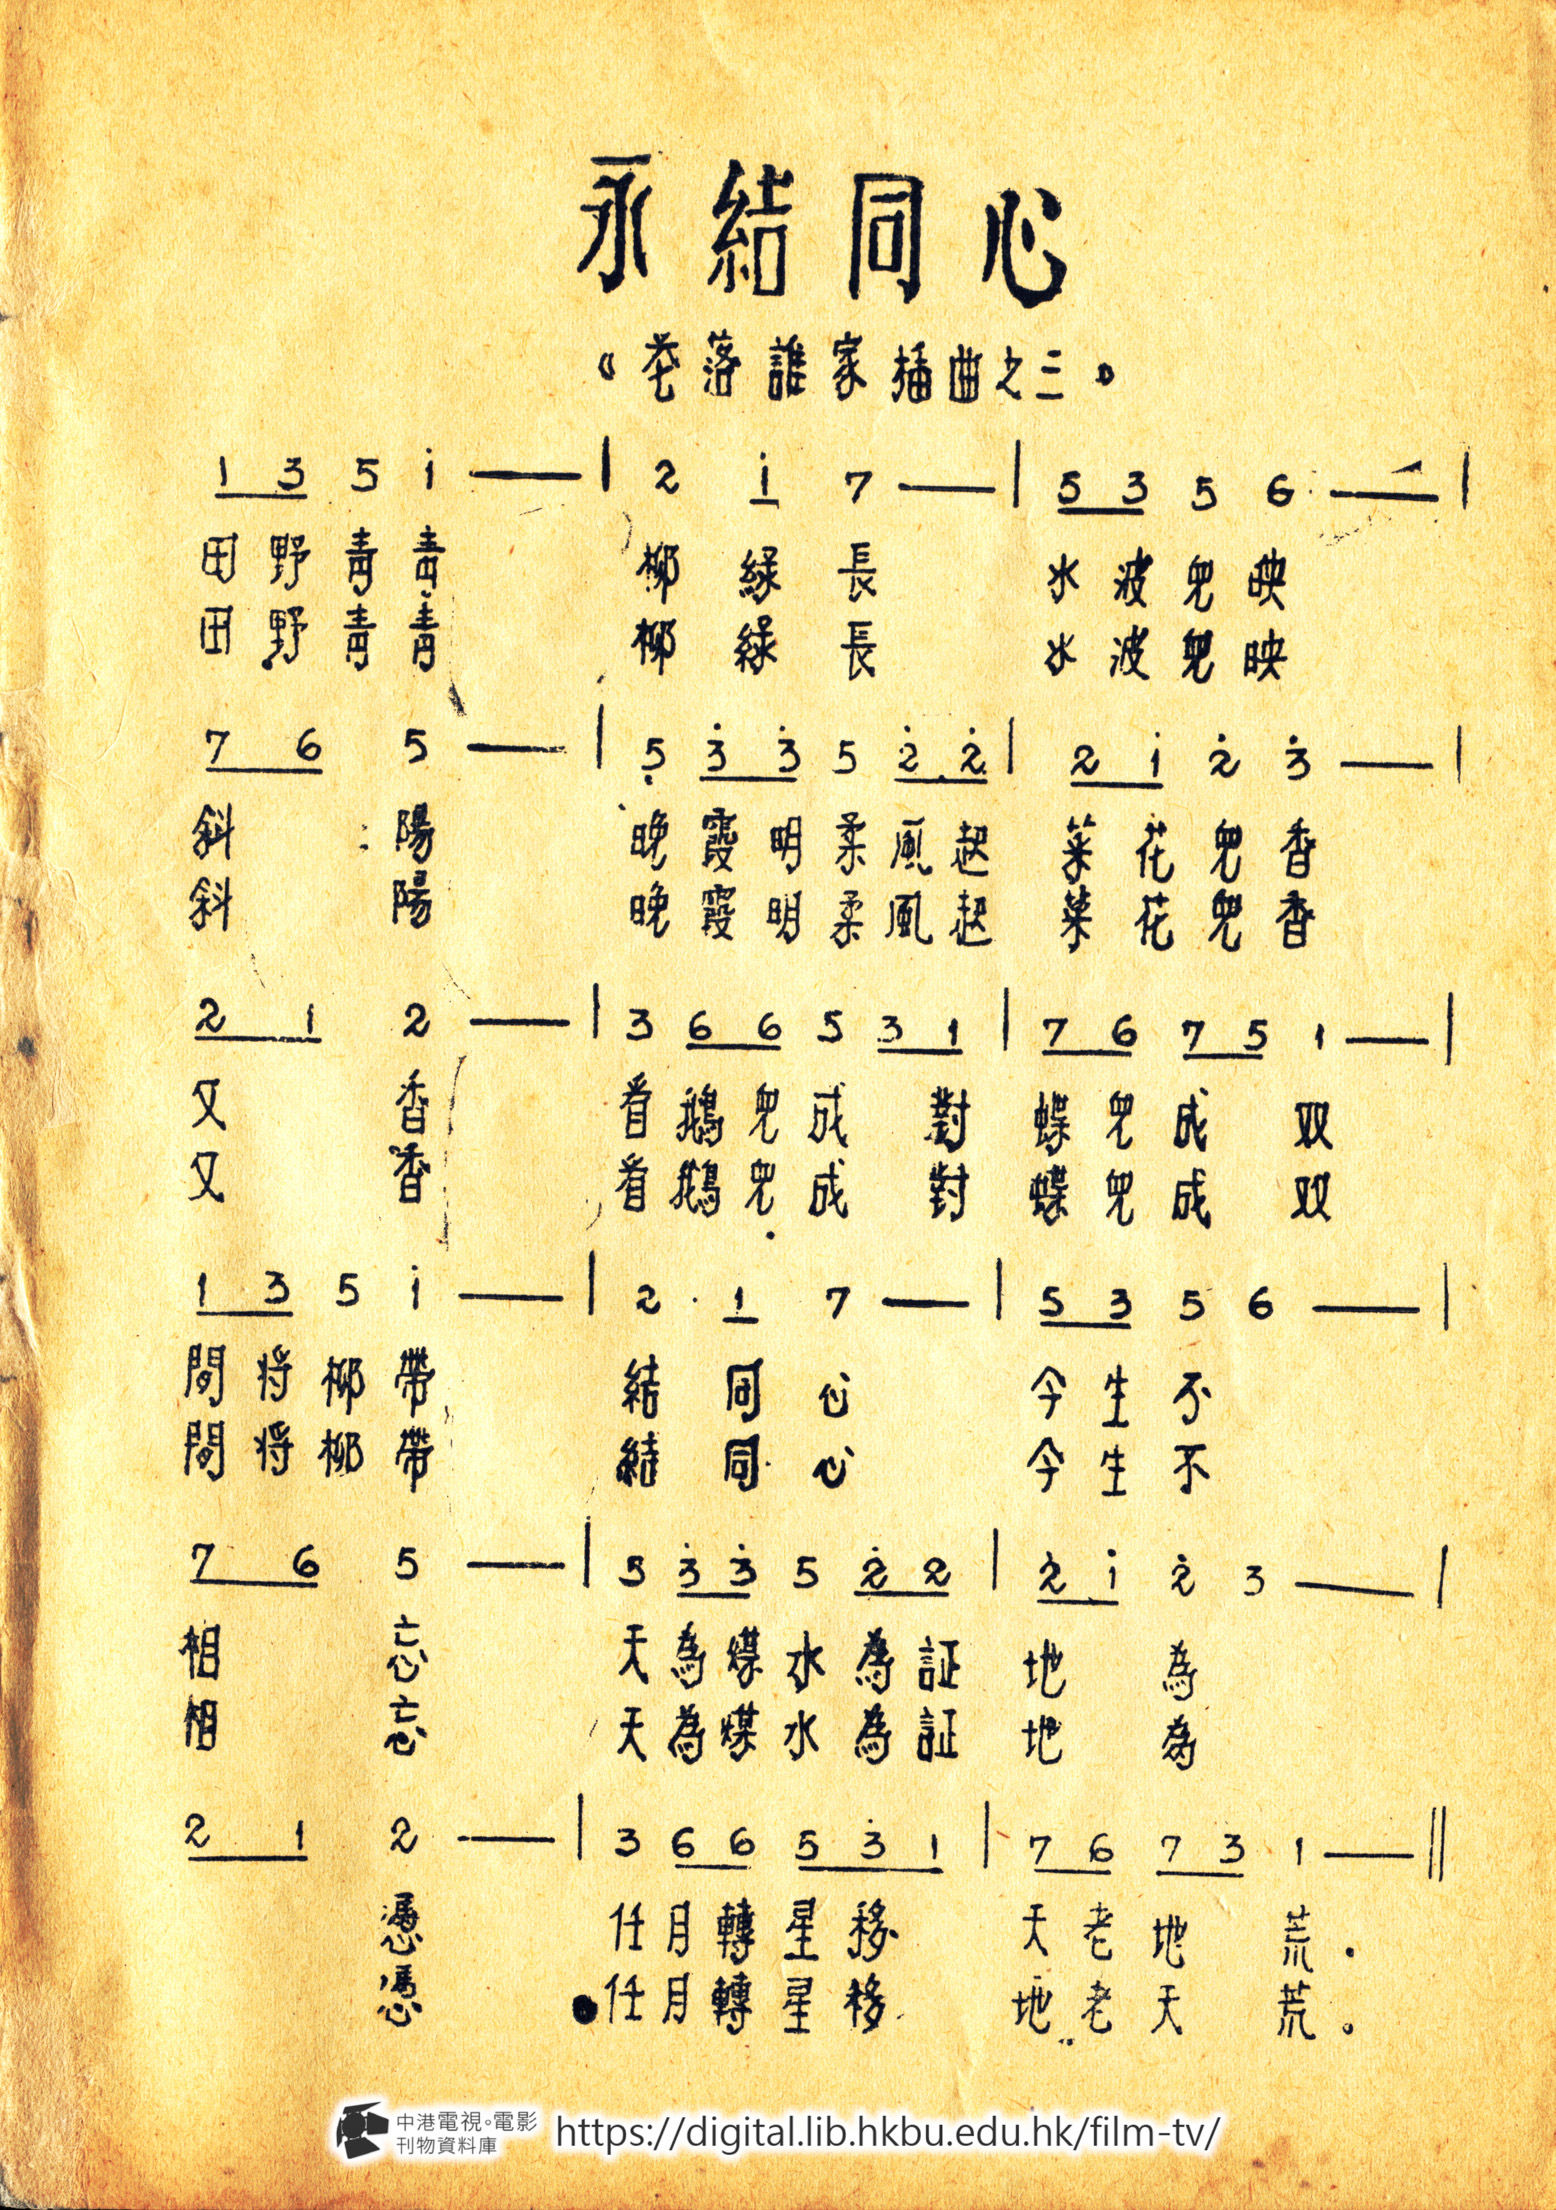 永結同心
《花落誰家插曲之二》
1 3 5 i — | 2 i 7 — | 5 3 5 6 — |
田野青青 柳綠長 水波兒映
田野青青 柳綠長 水波兒映
7 6 5 — | 5 3 3 5 2 2 | 2 i 2 3 — |
斜陽 晚霞明柔風起 菜花兒香
斜陽 晚霞明柔風起 菜花兒香
2 1 2 — | 3 6 6 5 3 1 | 7 6 7 5 1 — |
又香 看鵝兒成對 蝶兒成双
又香 看鵝兒成對 蝶兒成双
1 3 5 i — | 2 · 1 7 — | 5 3 5 6 — |
間將柳帶 結同心 今生不
間將柳帶 結同心 今生不
7 6 5 — | 5 3 3 5 2 2 | 2 i 2 3 — |
相忘 天為媒水為証 地為
相忘 天為媒水為証 地為
2 1 2 — | 3 6 6 5 3 1 | 7 6 7 3 1 — ||
憑 任月轉星移 天老地荒.
憑 任月轉星移 地老天荒。
中港電視。電影
刊物資料庫
https://digital.lib.hkbu.edu.hk/film-tv/